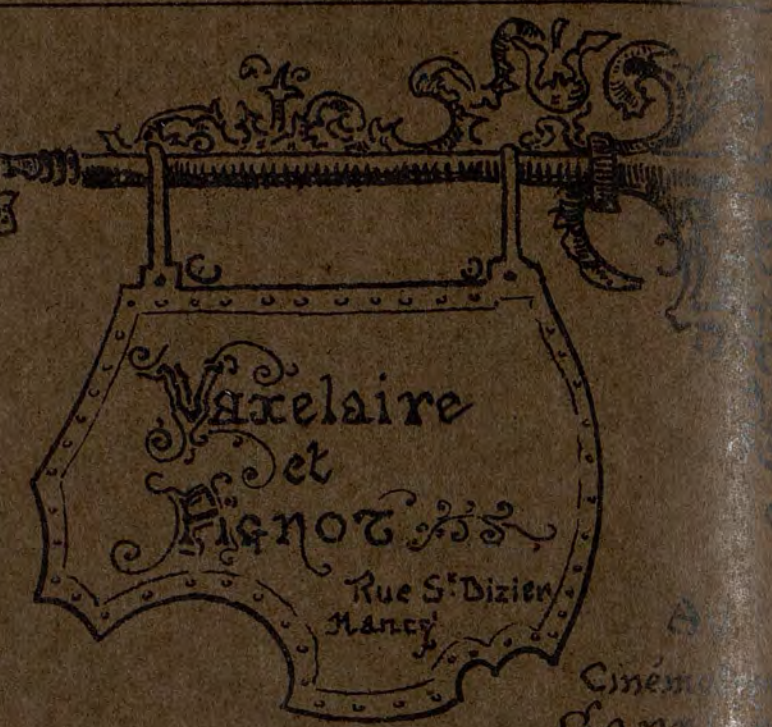 Vaxelaire
et
Pignot
Rue St Dizier
Nancy